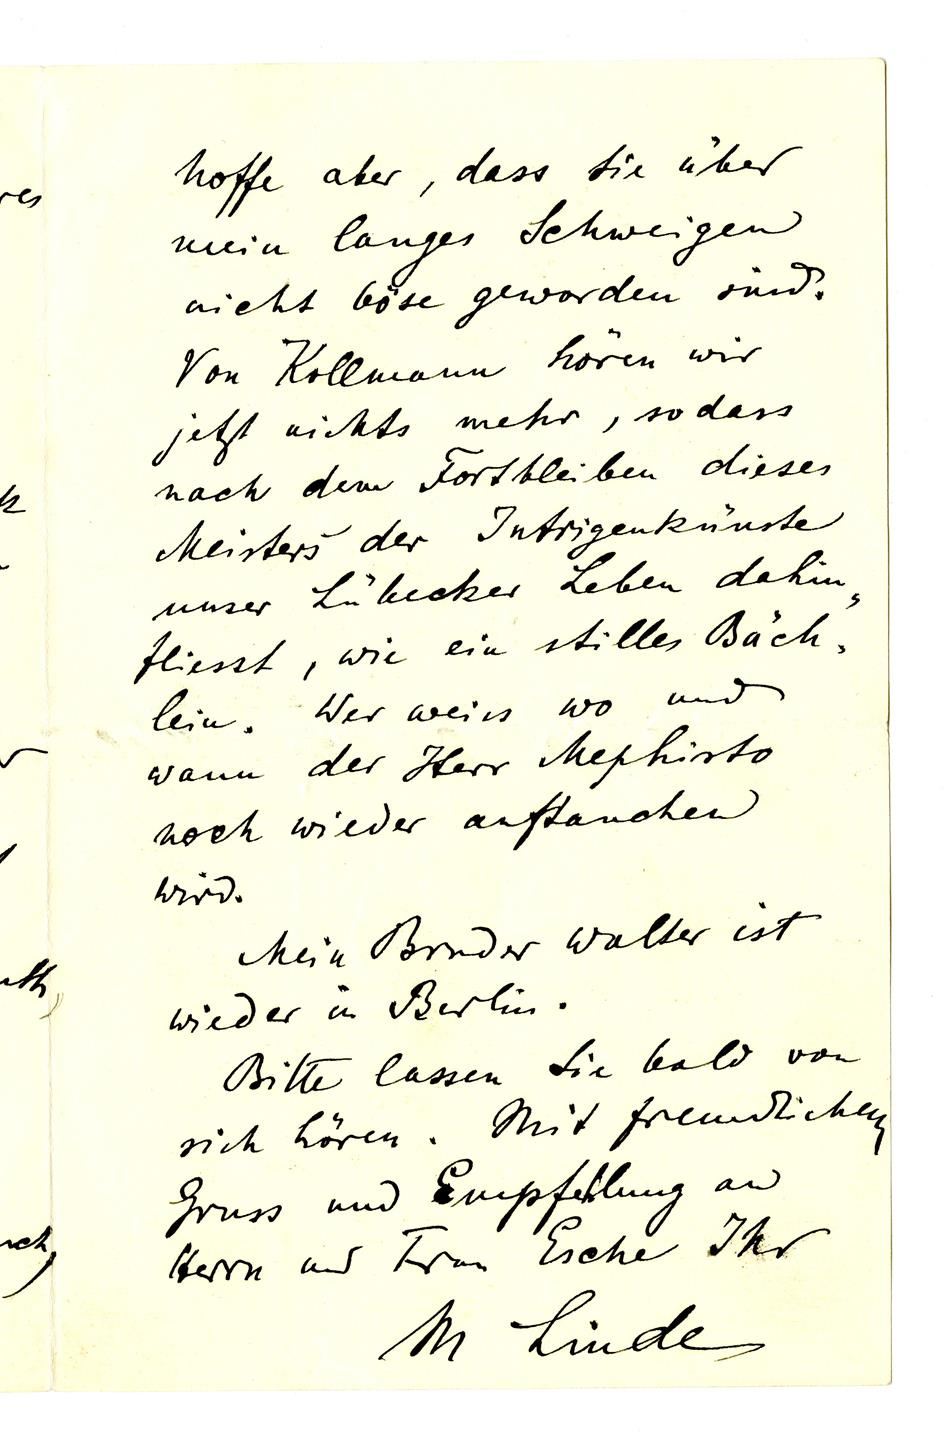 hoffe aber, dass Sie über
mein langes Schweigen
nicht böse geworden sind.
Von Kollmann hören wir
jetzt nichts mehr, sodass
nach dem Fortbleiben dieses
Meisters der Intrigenkünste
unser Lübecker Leben dahin„
fliesst, wie ein stilles Bäch-
lein. Wer weiss wo und
wann der Herr Mephisto
noch wieder auftauchen
wird.
Mein Bruder Walter ist
wieder in Berlin.
Bitte lassen Sie bald von
sich hören. Mit freundlichem
Gruss und Empfehlung an
Herrn und Frau Esche Ihr
M Linde